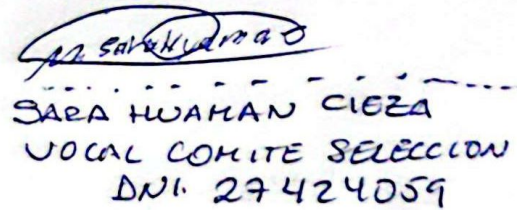 SARA HUAMAN CIEZA
VOCAL COMITE SELECCION
DNI. 27424059